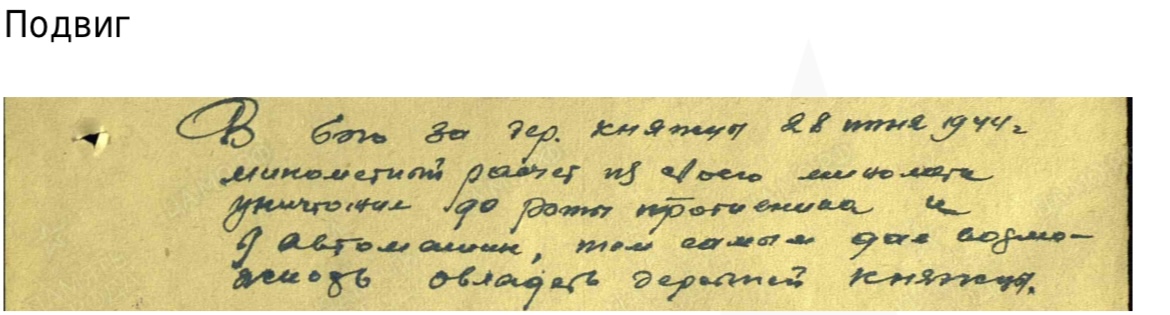 Подвиг
В бою за дер. Княжцы 28 июня 1944 г
минометный расчет из своего миномета
уничтожил до роты противника и
автомашин, тем самым дал возмо-
жность овладеть деревней Княжцы.